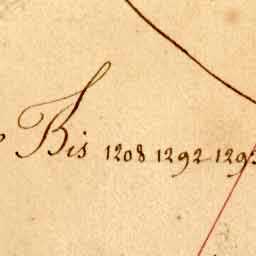 Bis 1208 1292 129